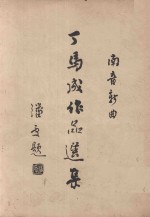 南音新曲
丁馬成作品選集
潘受題